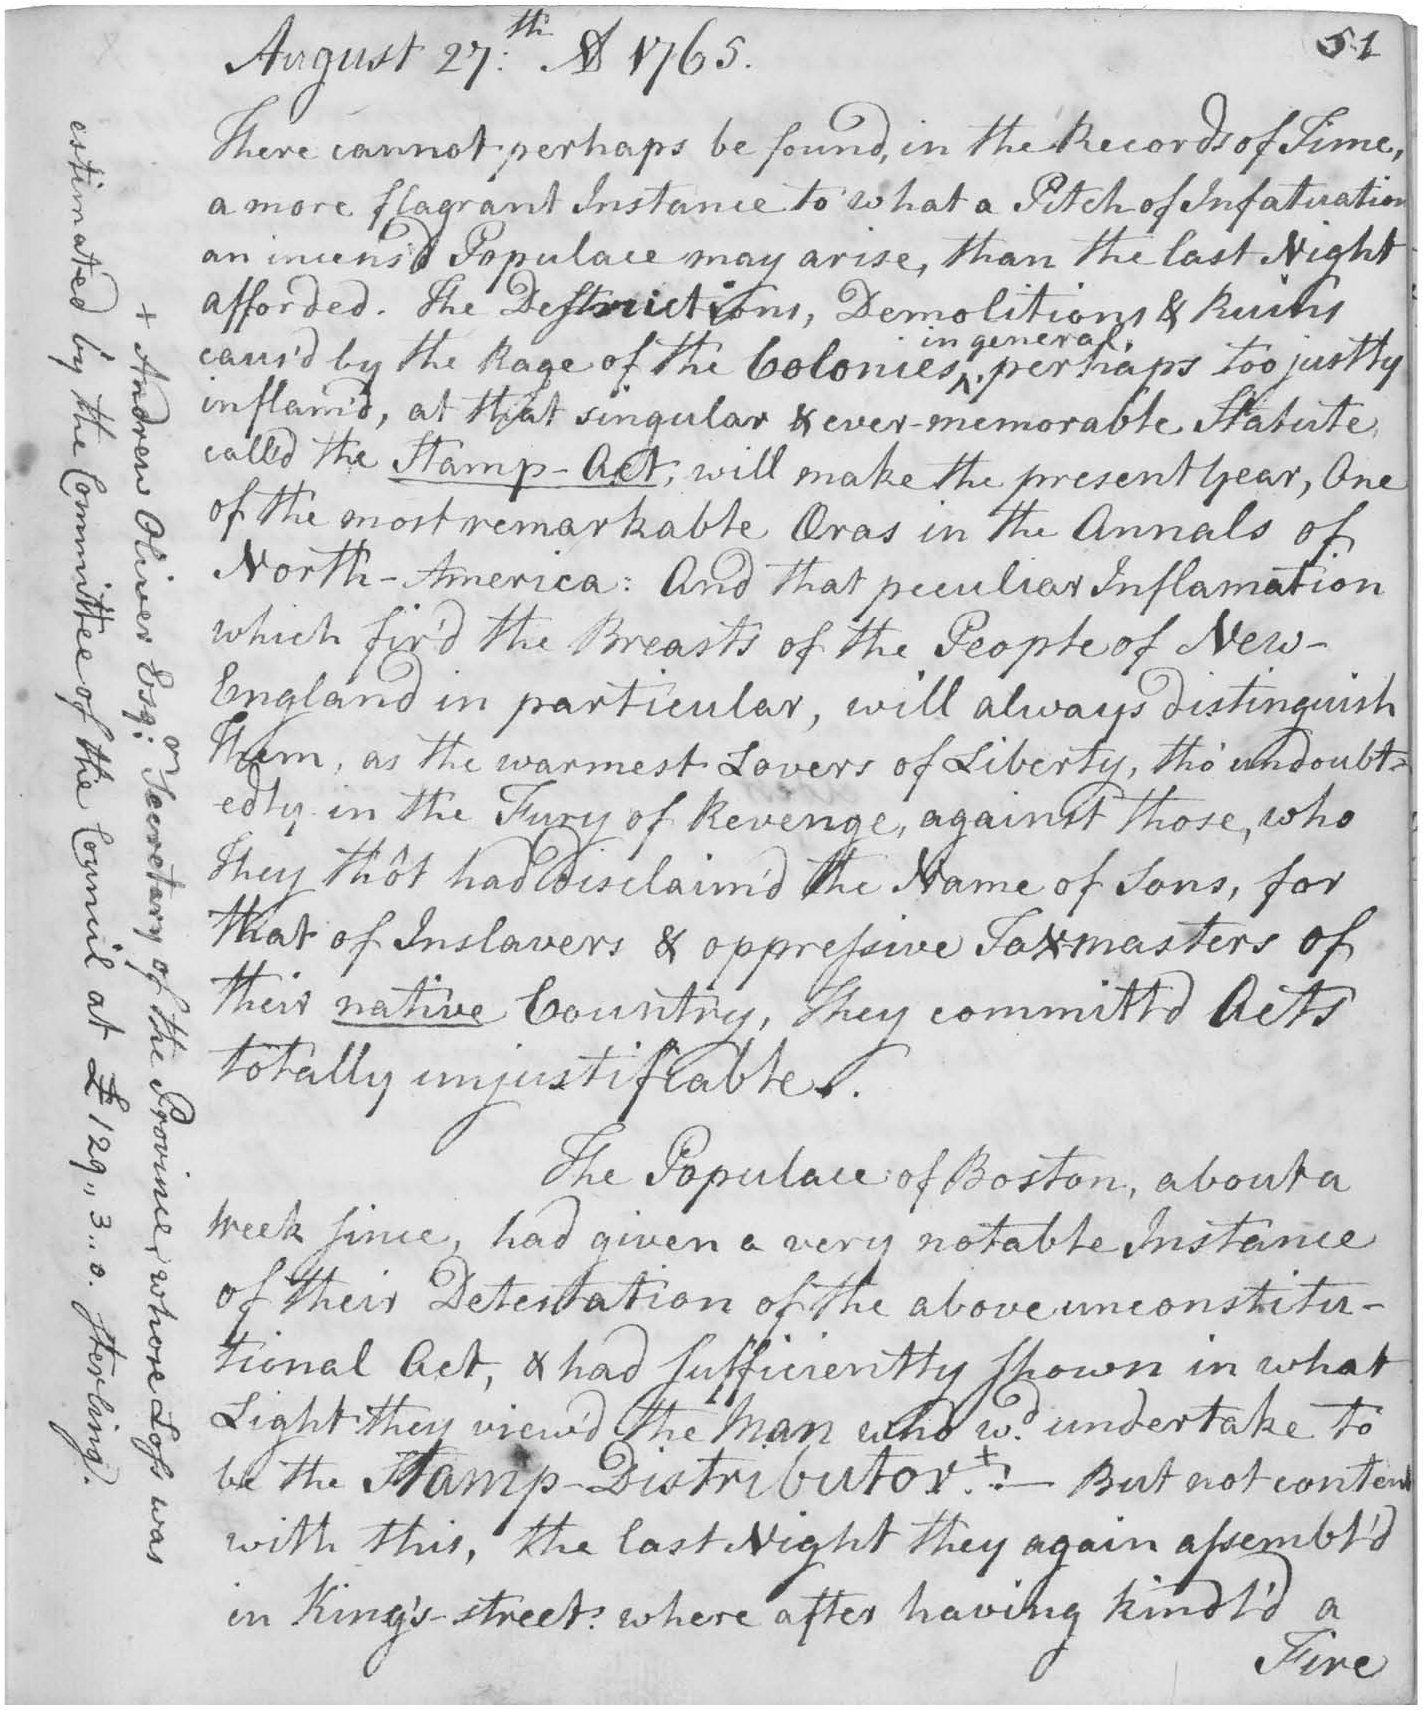 51
August 27.th AD 1765.
There cannot perhaps be found, in the Records of Time,
a more flagrant Instance to what a Pitch of Infatuation
an incens'd Populace may arise, than the last Night
afforded. The Destructions, Demolitions & Ruins
caus'd by the Rage of the Colonies, in general, perhaps too justly
inflam'd, at that singular & ever-memorable Statute
call'd the Stamp-Act, will make the present Year, One
of the most remarkable Æras in the Annals of
North-America: And that peculiar Inflamation
which fir'd the Breasts of the People of New-
England in particular, will always distinguish
Them, as the warmest Lovers of Liberty, tho' undoubt=
edly in the Fury of Revenge, against those, who
They thôt had disclaim'd the Name of Sons, for
that of Inslavers & oppressive Taxmasters of
their native Country, they committ'd Acts
totally unjustifiable.
The Populace of Boston, about a
Week since, had given a very notable Instance
of their Detestation of the above unconstitu-
tional Act, & had sufficiently shown in what
Light they view'd the Man who wd. undertake to
be the Stamp-Distributor.+ — But not content
with this, the last Night they again assembl'd
in King's-street: where after having kindl'd a
Fire
+ Andrew Oliver Esqr. Secretary of the Province, whose Loss was
estimated by the Committee of the Council at £129,,3,,0. sterling.